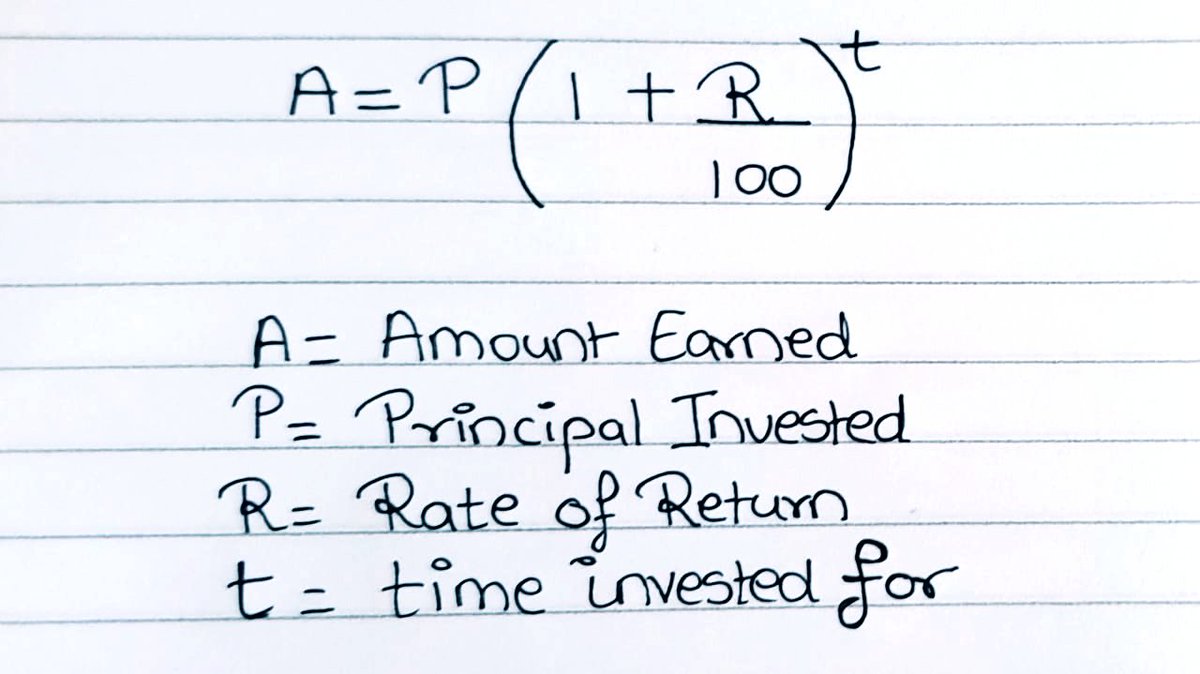 A = P (1 + R/100)^t
A = Amount Earned
P = Principal Invested
R = Rate of Return
t = time invested for